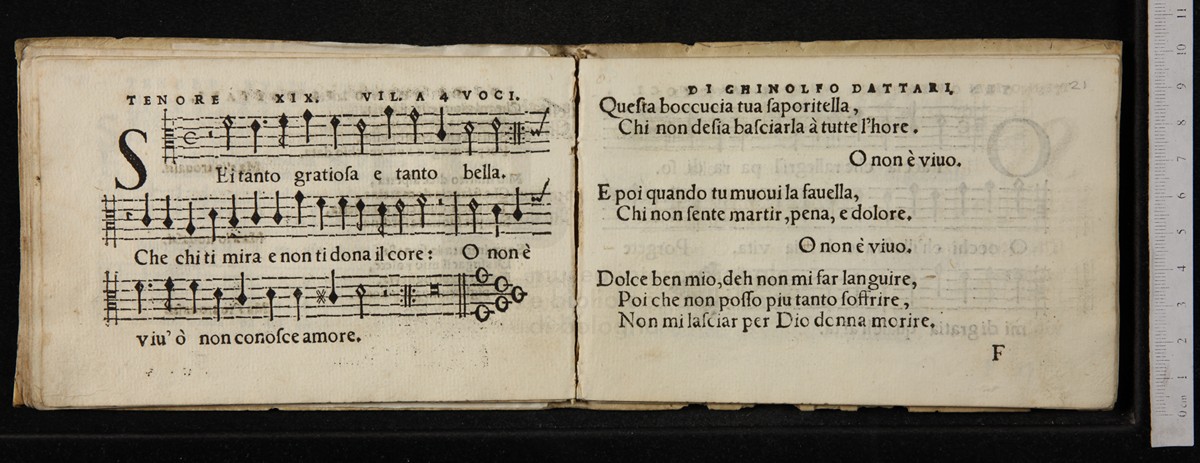 TENORE XIX. VIL. A 4 VOCI.
SEi tanto gratioſa e tanto bella.
Che chi ti mira e non ti dona il core: O non è
viu' ò non conoſce amore.
DI GHINOLFO DATTARI, 21
Queſta boccucia tua ſaporitella,
Chi non deſia baſciarla à tutte l'hore.
O non è viuo.
E poi quando tu muoui la fauella,
Chi non ſente martir, pena, e dolore.
O non è viuo.
Dolce ben mio, deh non mi far languire,
Poi che non poſſo piu tanto ſoffrire,
Non mi laſciar per Dio donna morire.
F
0 cm 1 2 3 4 5 6 7 8 9 10 11